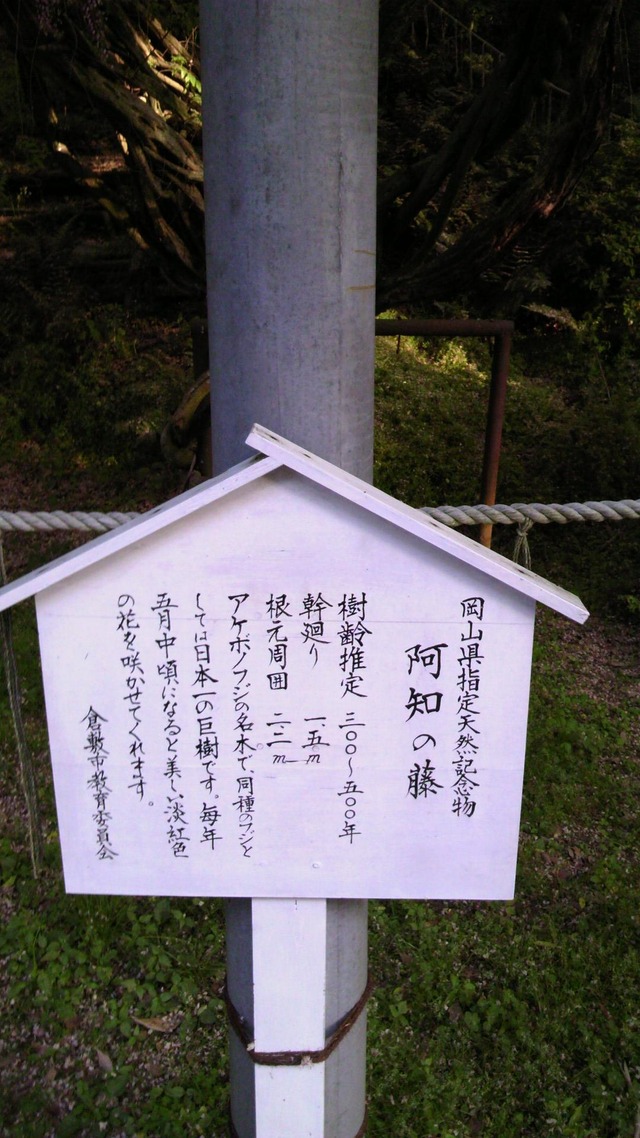 岡山県指定天然記念物
阿知の藤
樹齢推定 三〇〇〜五〇〇年
幹廻り 一.五m
根元周囲 二.二m
アケボノフジの名木で、同種のフジと
しては日本一の巨樹です。毎年
五月中頃になると美しい淡紅色
の花を咲かせてくれます。
倉敷市教育委員会